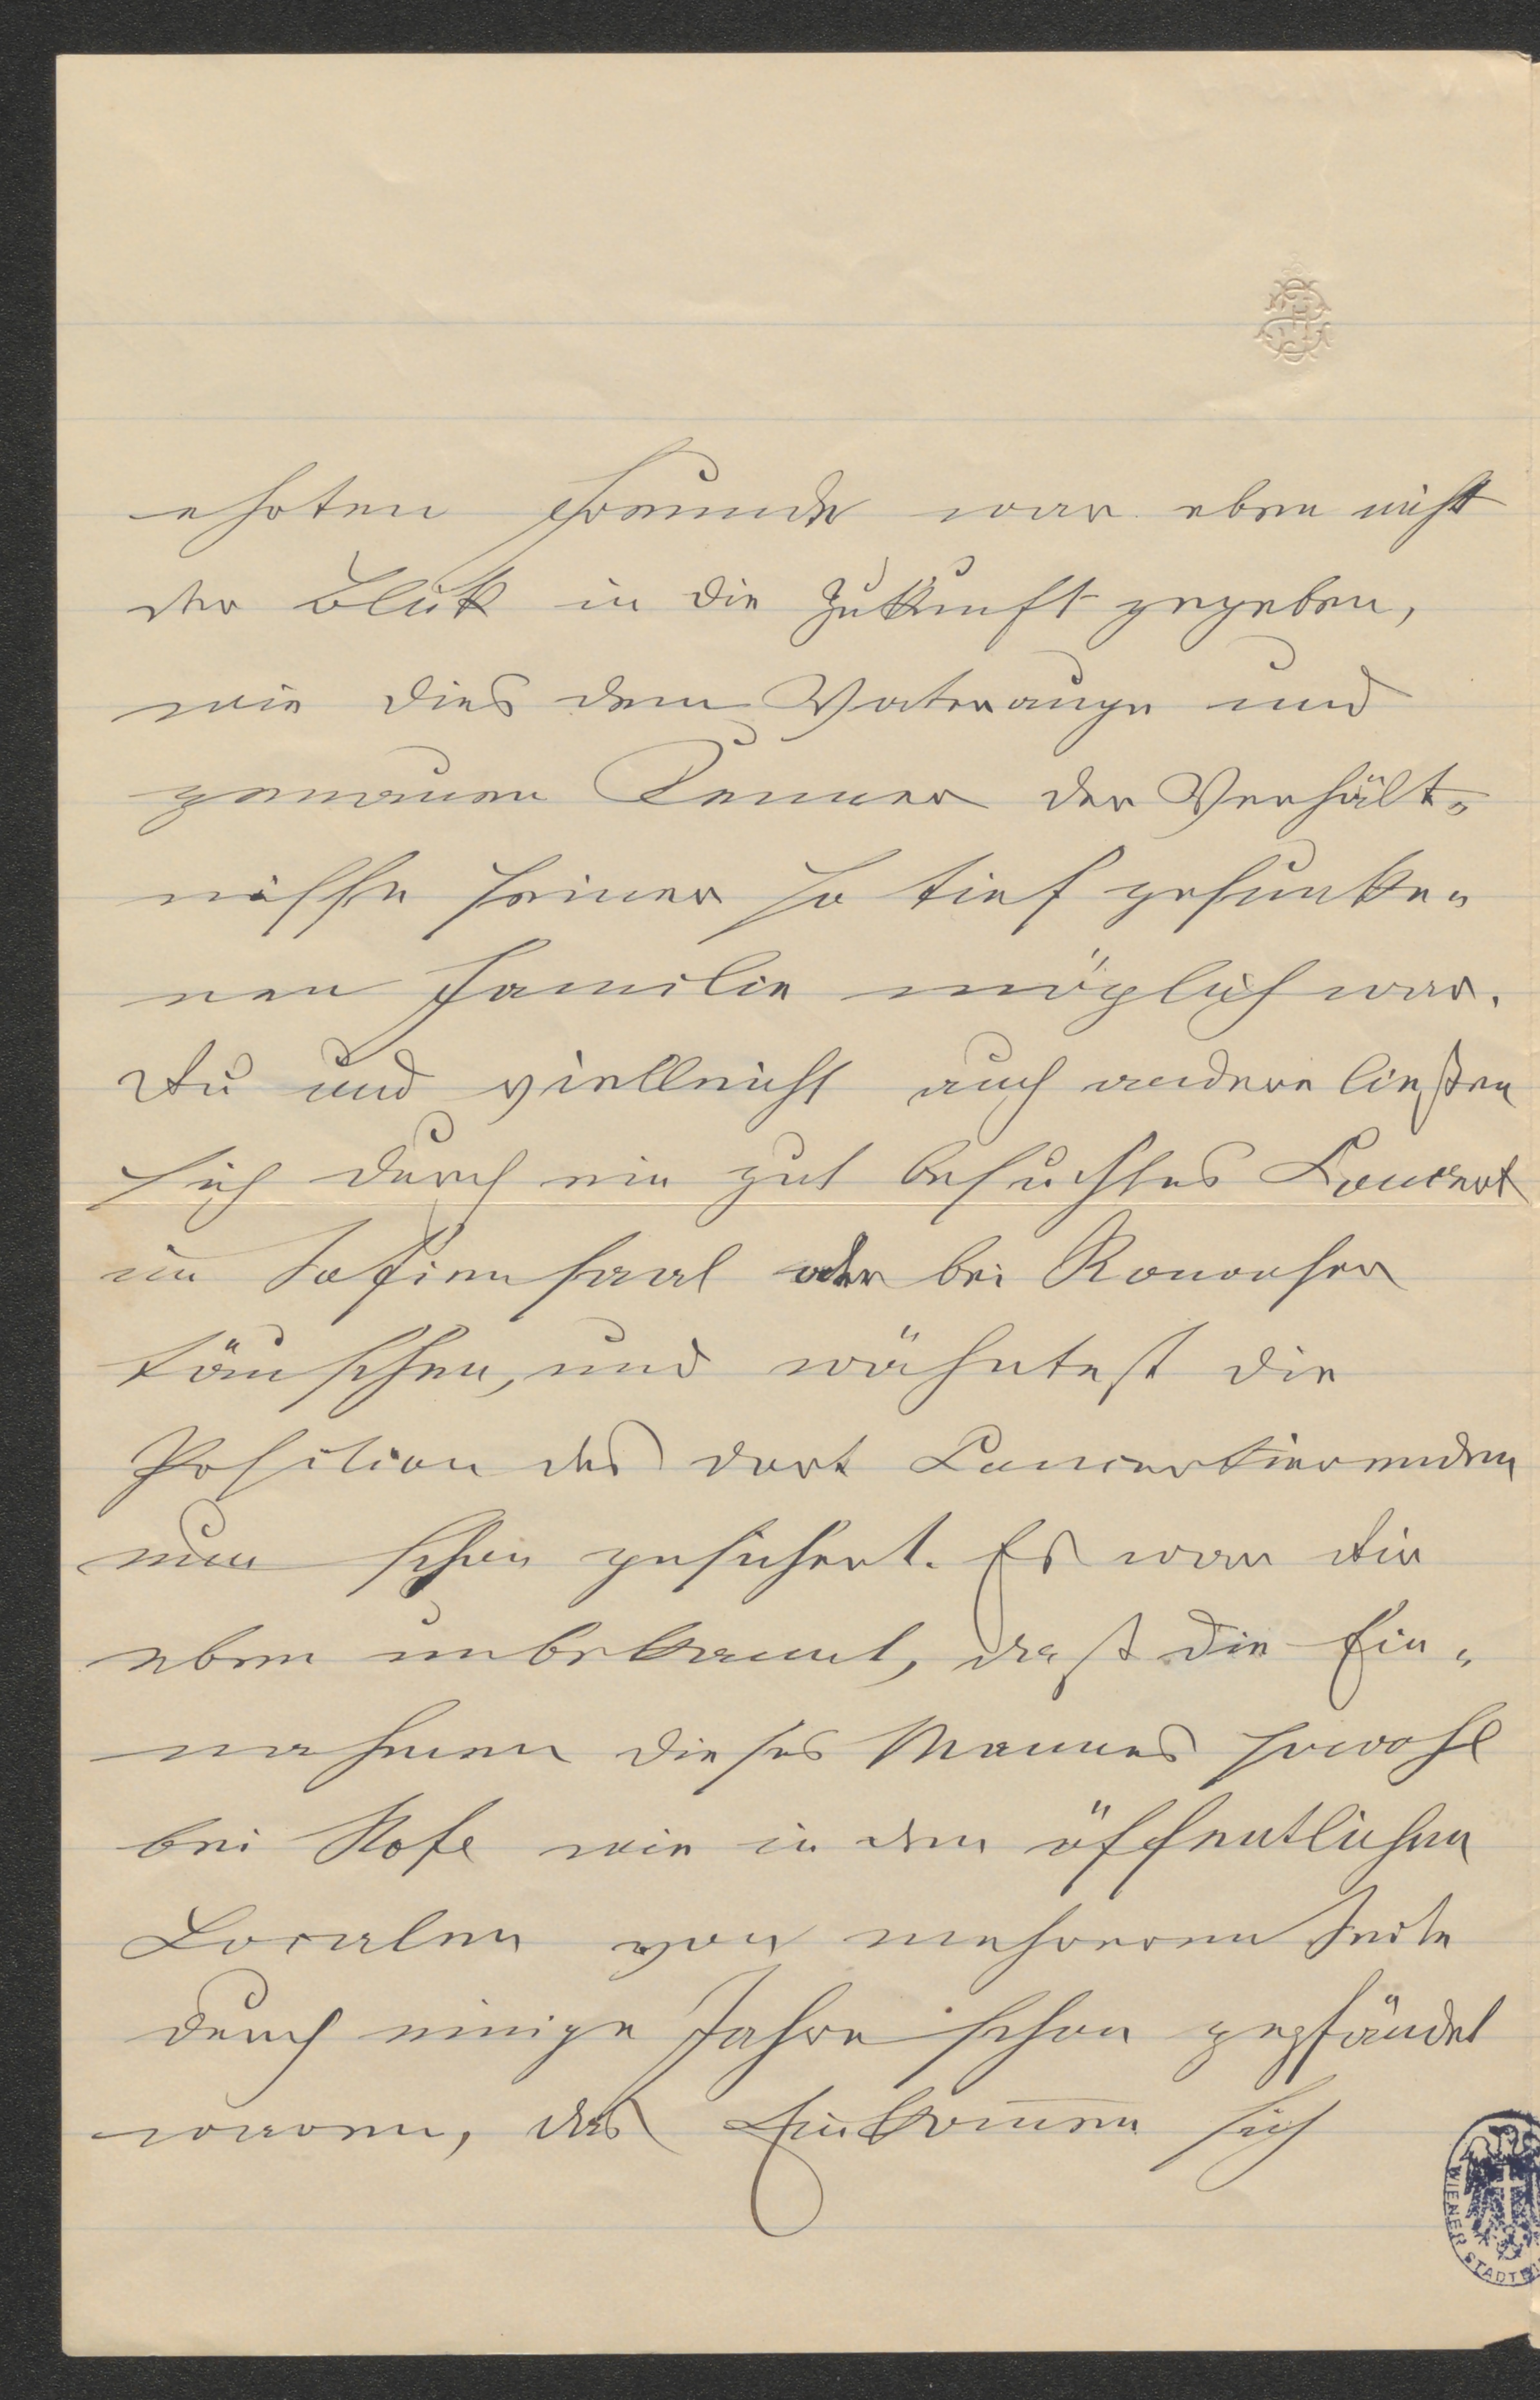 ehrten Freunde war eben nicht
der Blick in die Zukunft gegeben,
wie dies dem Vaterauge und
genauen Kenner der Verhält„
nisse seiner so tief gesunke„
nen Familie möglich war.
Du und vielleicht auch andere ließen
sich durch ein gut besuchtes Concert
im Sofiensaal oder bei Ronacher
täuschen, und wähntest die
Position des dort Concertierenden
nun schon gesichert. Es war Dir
eben unbekannt, daß die Ein„
nahmen dieses Mannes sowohl
bei Hofe wie in den öffentlichen
Localen von mehreren Seite
durch einige Jahre schon gepfändet
waren, das Einkom̅en sich
WIENER STADT